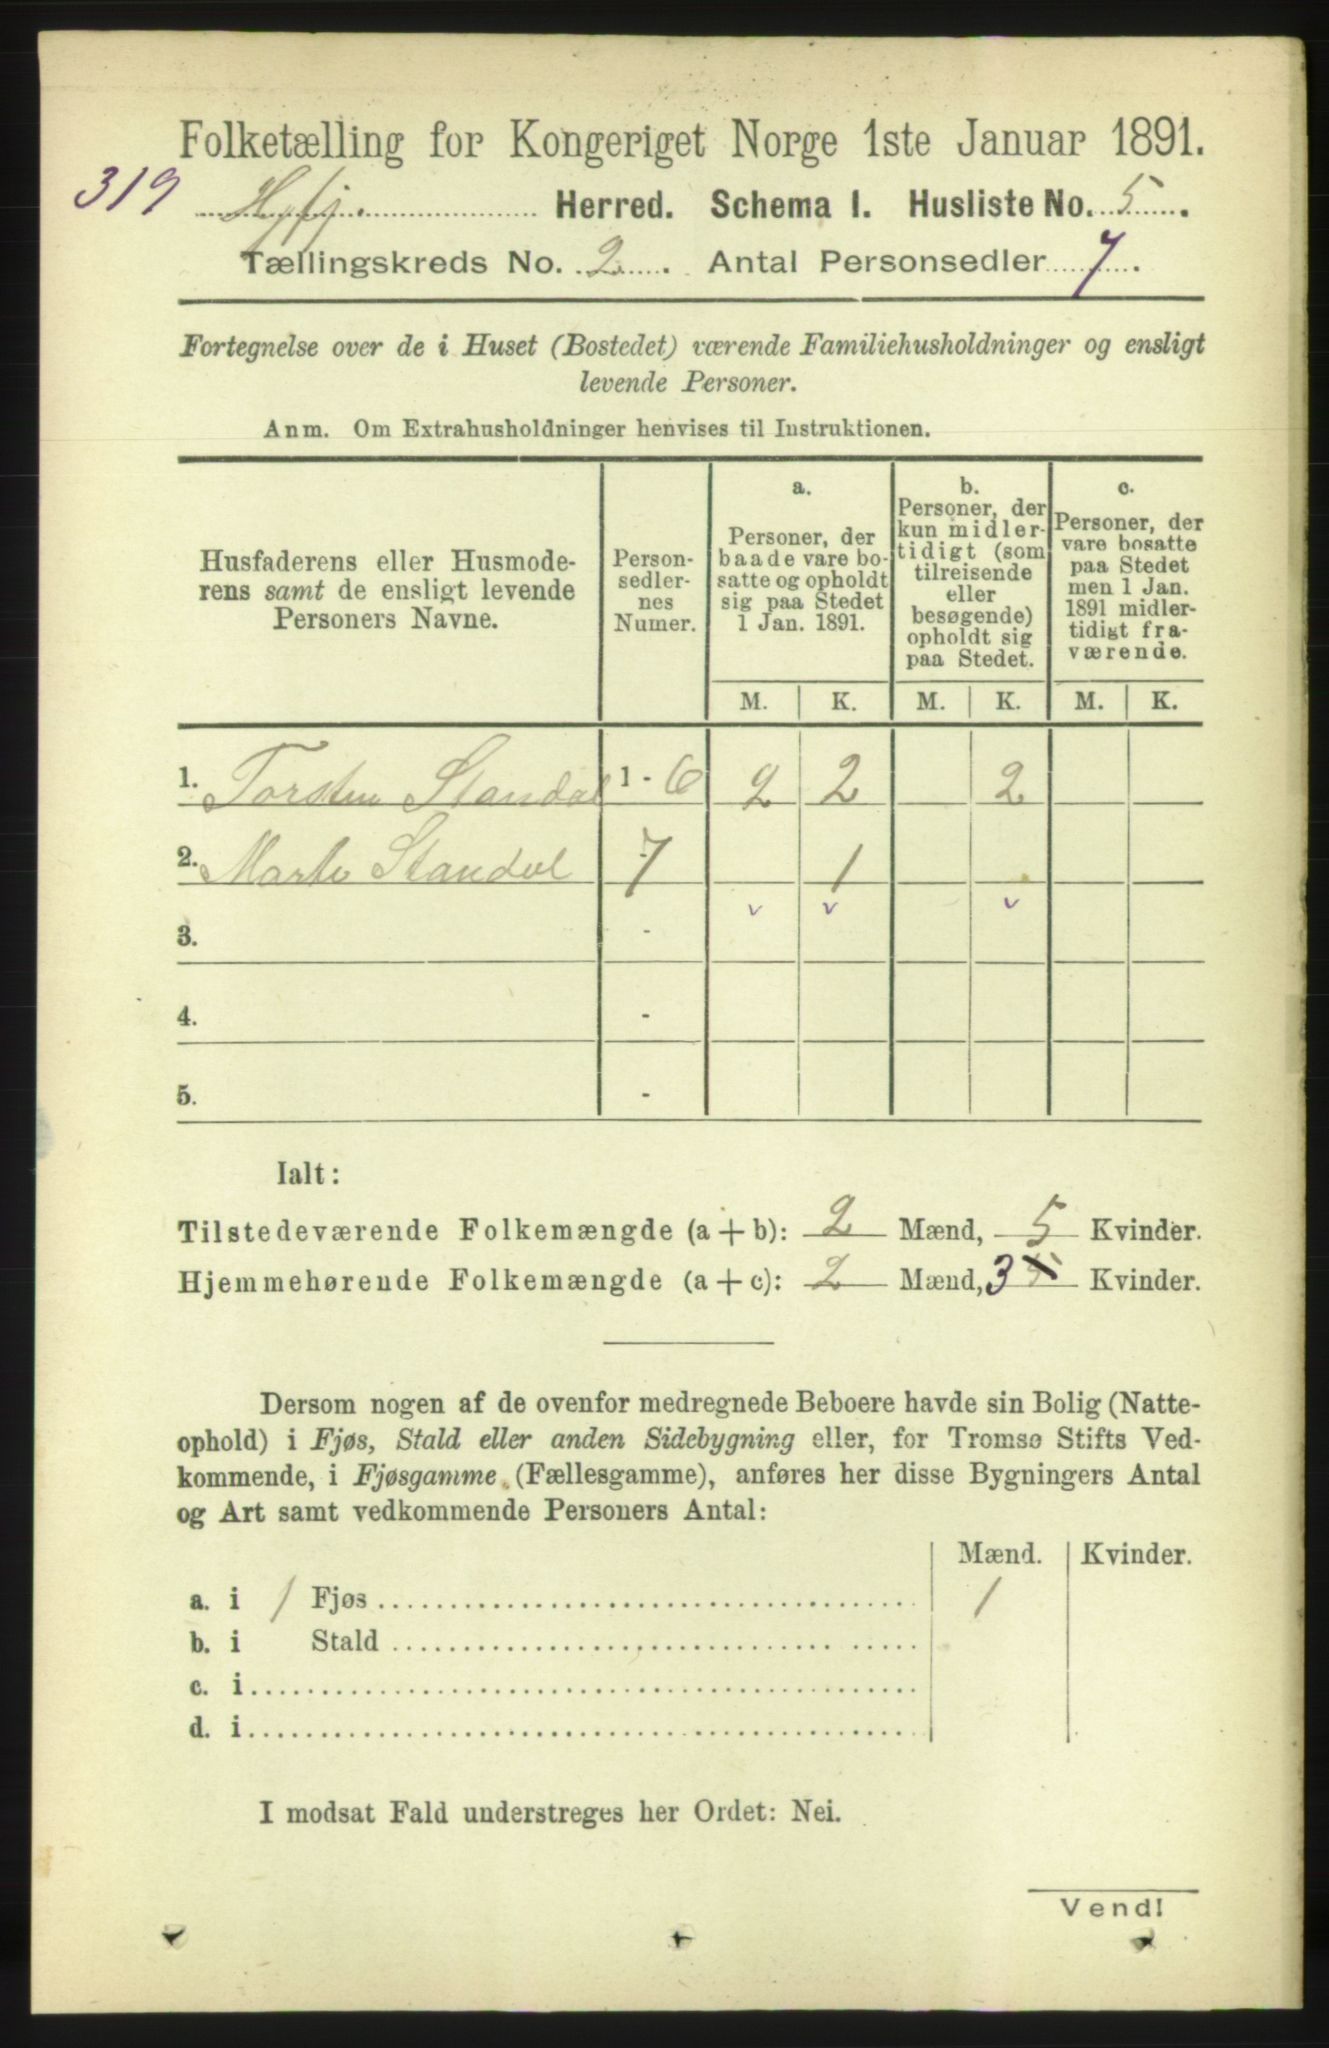 Folketælling for Kongeriget Norge 1ste Januar 1891.
319
Herred. Schema I. Husliste No. 5.
Tællingskreds No. 2. Antal Personsedler 7.
Fortegnelse over de i Huset (Bostedet) værende Familiehusholdninger og ensligt
levende Personer.
Anm. Om Extrahusholdninger henvises til Instruktionen.
Husfaderens eller Husmode-
rens samt de ensligt levende
Personers Navne.
Person-
sedler-
nes
Numer.
a.
Personer, der
baade vare bo-
satte og opholdt
sig paa Stedet
1 Jan. 1891.
b.
Personer, der
kun midler-
tidigt (som
tilreisende
eller
besøgende)
opholdt sig
paa Stedet.
c.
Personer, der
vare bosatte
paa Stedet
men 1 Jan.
1891 midler-
tidigt fra-
værende.
M. K. M. K. M. K.
1. Torsten Standal 1 - 6 2 2 2
2. Marte Standal 7 1
v v v
3. -
4. -
5. -
Ialt:
Tilstedeværende Folkemængde (a + b): 2 Mænd, 5 Kvinder.
Hjemmehørende Folkemængde (a + c): 2 Mænd, 3 5 Kvinder.
Dersom nogen af de ovenfor medregnede Beboere havde sin Bolig (Natte-
ophold) i Fjøs, Stald eller anden Sidebygning eller, for Tromsø Stifts Ved-
kommende, i Fjøsgamme (Fællesgamme), anføres her disse Bygningers Antal
og Art samt vedkommende Personers Antal:
Mænd. Kvinder.
a. i 1 Fjøs 1
b. i Stald
c. i
d. i
I modsat Fald understreges her Ordet: Nei.
Vend!